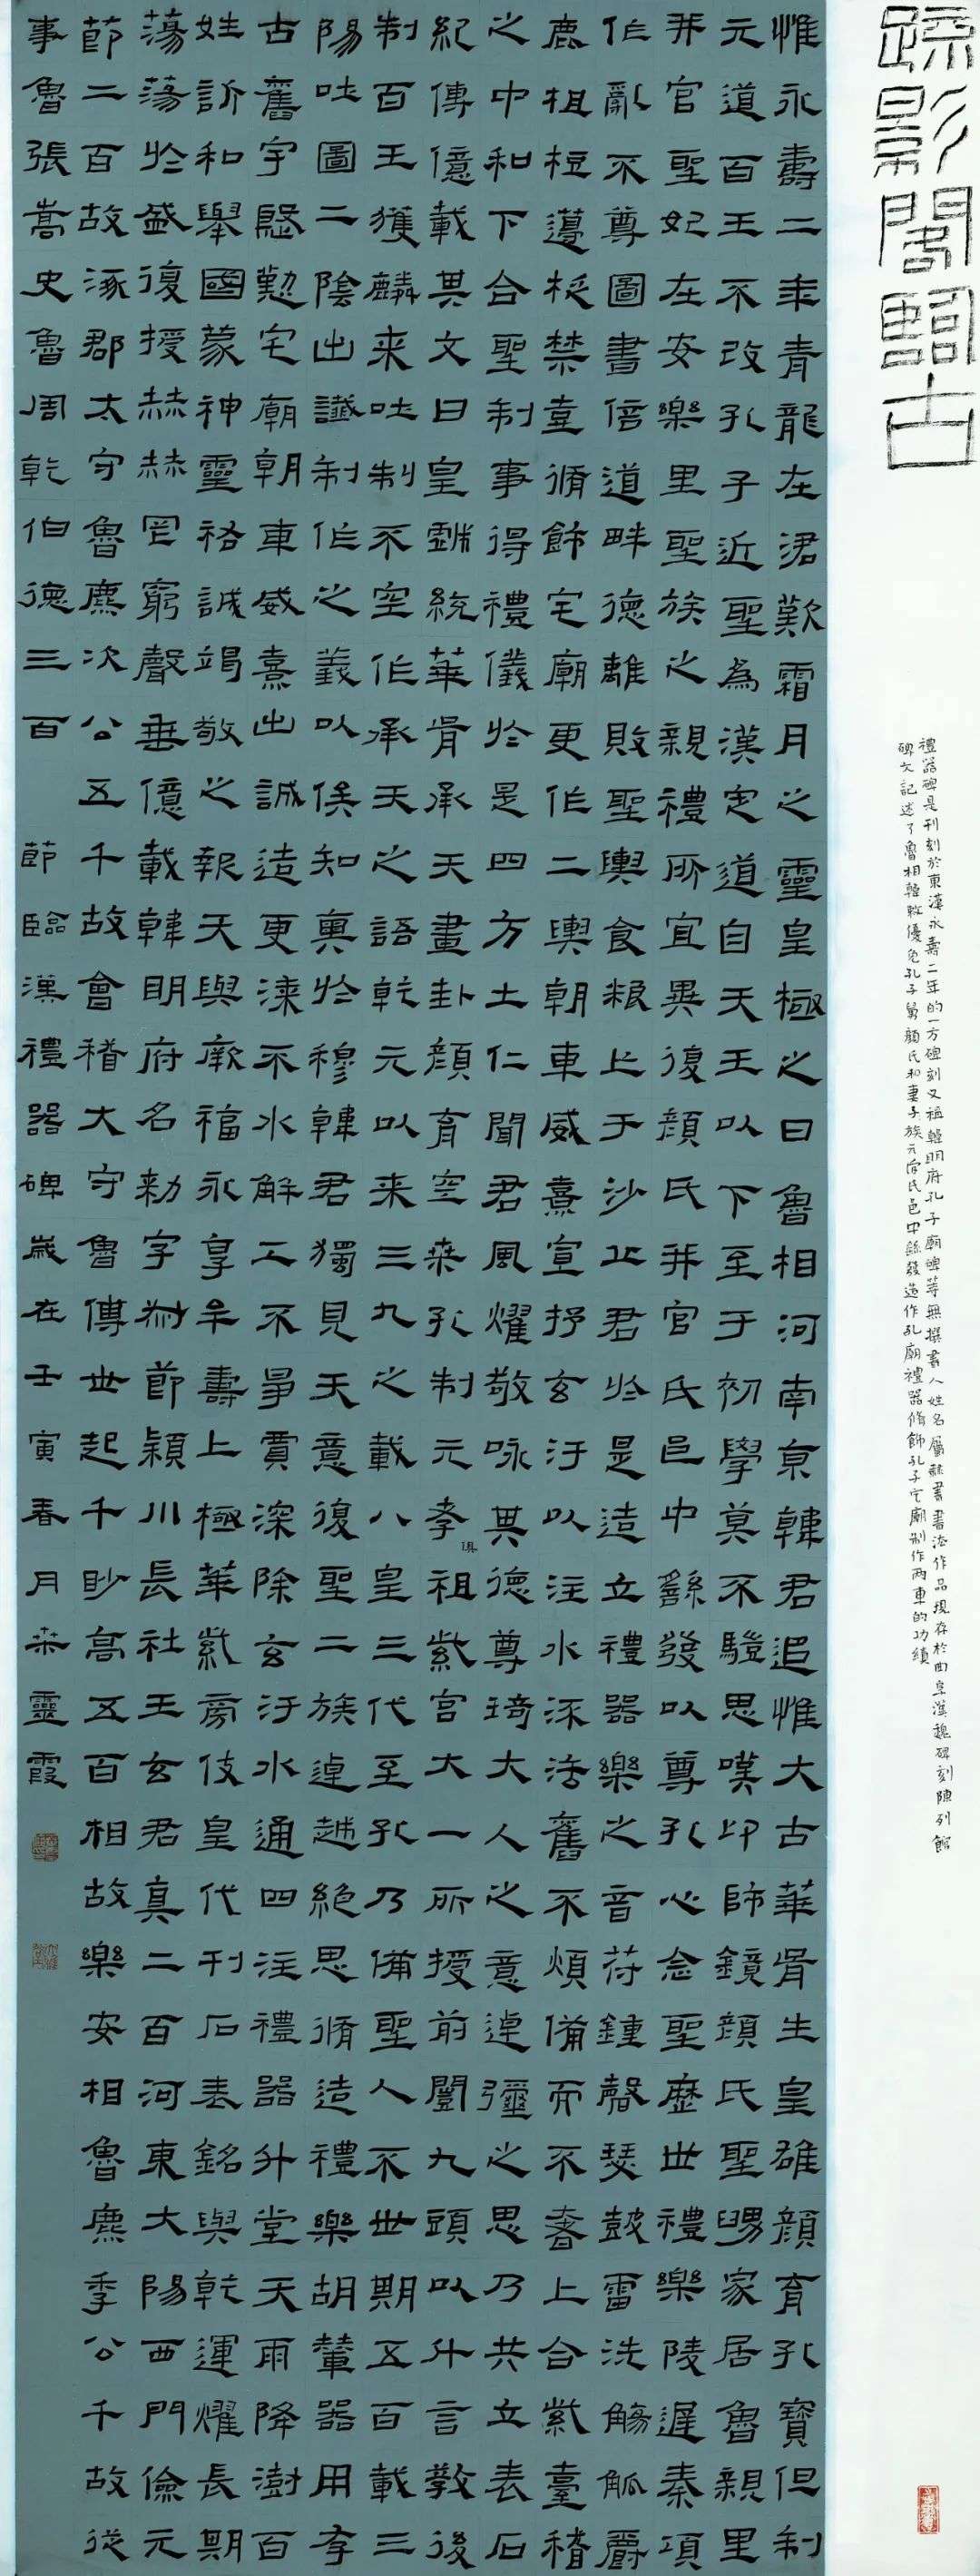 疏影閣臨古
禮器碑是刊刻於東漢永壽二年的一方碑刻又稱韓明府孔子廟碑等無撰書人姓名屬隸書書法作品現存於曲阜漢魏碑刻陳列館
碑文記述了魯相韓敕優免孔子舅顏氏和妻子族亓官氏邑中繇發造作孔廟禮器修飾孔子宅廟制作兩車的功績
惟永壽二年青龍在涒歎霜月之靈皇極之日魯相河南京韓君追惟大古華胥生皇雄顏育孔寶俱制
元道百王不改孔子近聖為漢定道自天王以下至于初學莫不驗思嘆卬師鏡顏氏聖舅家居魯親里
并官聖妃在安樂里聖族之親禮所宜異復顏氏并官氏邑中繇發以尊孔心念聖歷世禮樂陵遲秦項
作亂不尊圖書倍道畔德離敗聖輿食粮亡于沙丘君於是造立禮器樂之音符鍾磬瑟鼓雷洗觴觚爵
鹿柤梪籩柉禁壺脩飾宅廟更作二輿朝車威熹宣抒玄汙以注水流法舊不煩備而不奢上合紫臺稽
之中和下合聖制事得禮儀於是四方土仁聞君風燿敬咏其德尊琦大人之意逴彌之思乃共立表石
紀傳億載其文曰皇戲統華胥承天畫卦顏育空桑孔制元孝俱祖紫宮大一所授前闓九頭以升言教後
制百王獲麟來吐制不空作承天之語乾元以來三九之載八皇三代至孔乃備聖人不世期五百載三
陽吐圖二陰出讖制作之義以俟知奧於穆韓君獨見天意復聖二族逴越絕思脩造禮樂胡輦器用存
古舊宇殷勤宅廟朝車威熹出誠造更漆不水解工不爭賈深除玄汙水通四注禮器升堂天雨降澍百
姓訢和舉國蒙神靈祐誠竭敬之報天與厥福永享牟壽上極華紫旁伎皇代刊石表銘與乾運燿長期
蕩蕩於盛復授赫赫罔窮聲垂億載韓明府名勑字叔節潁川長社王玄君真二百河東大陽西門儉元
節二百故涿郡太守魯麃次公五千故會稽大守魯傅世起千眇高五百相故樂安相魯麃季公千故從
事魯張嵩史魯周乾伯德三百 節臨漢禮器碑歲在壬寅春月榮靈霞